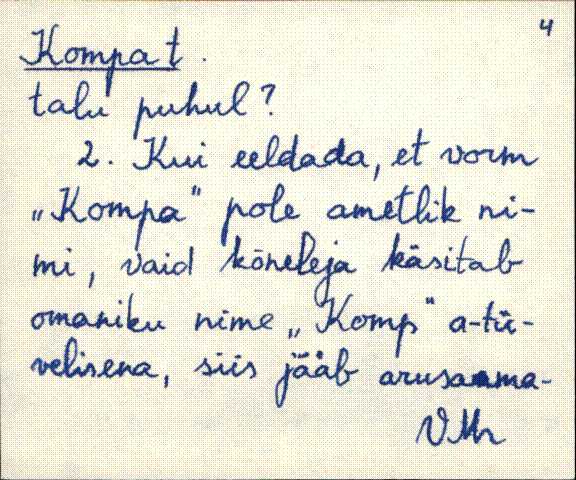 4
Kompa t.
talu puhul?
2. Kui eeldada, et vorm
„Kompa" pole ametlik ni-
mi, vaid kõneleja käsitab
omaniku nime „Komp" a-tü-
velisena, siis jääb arusaama-
VMr